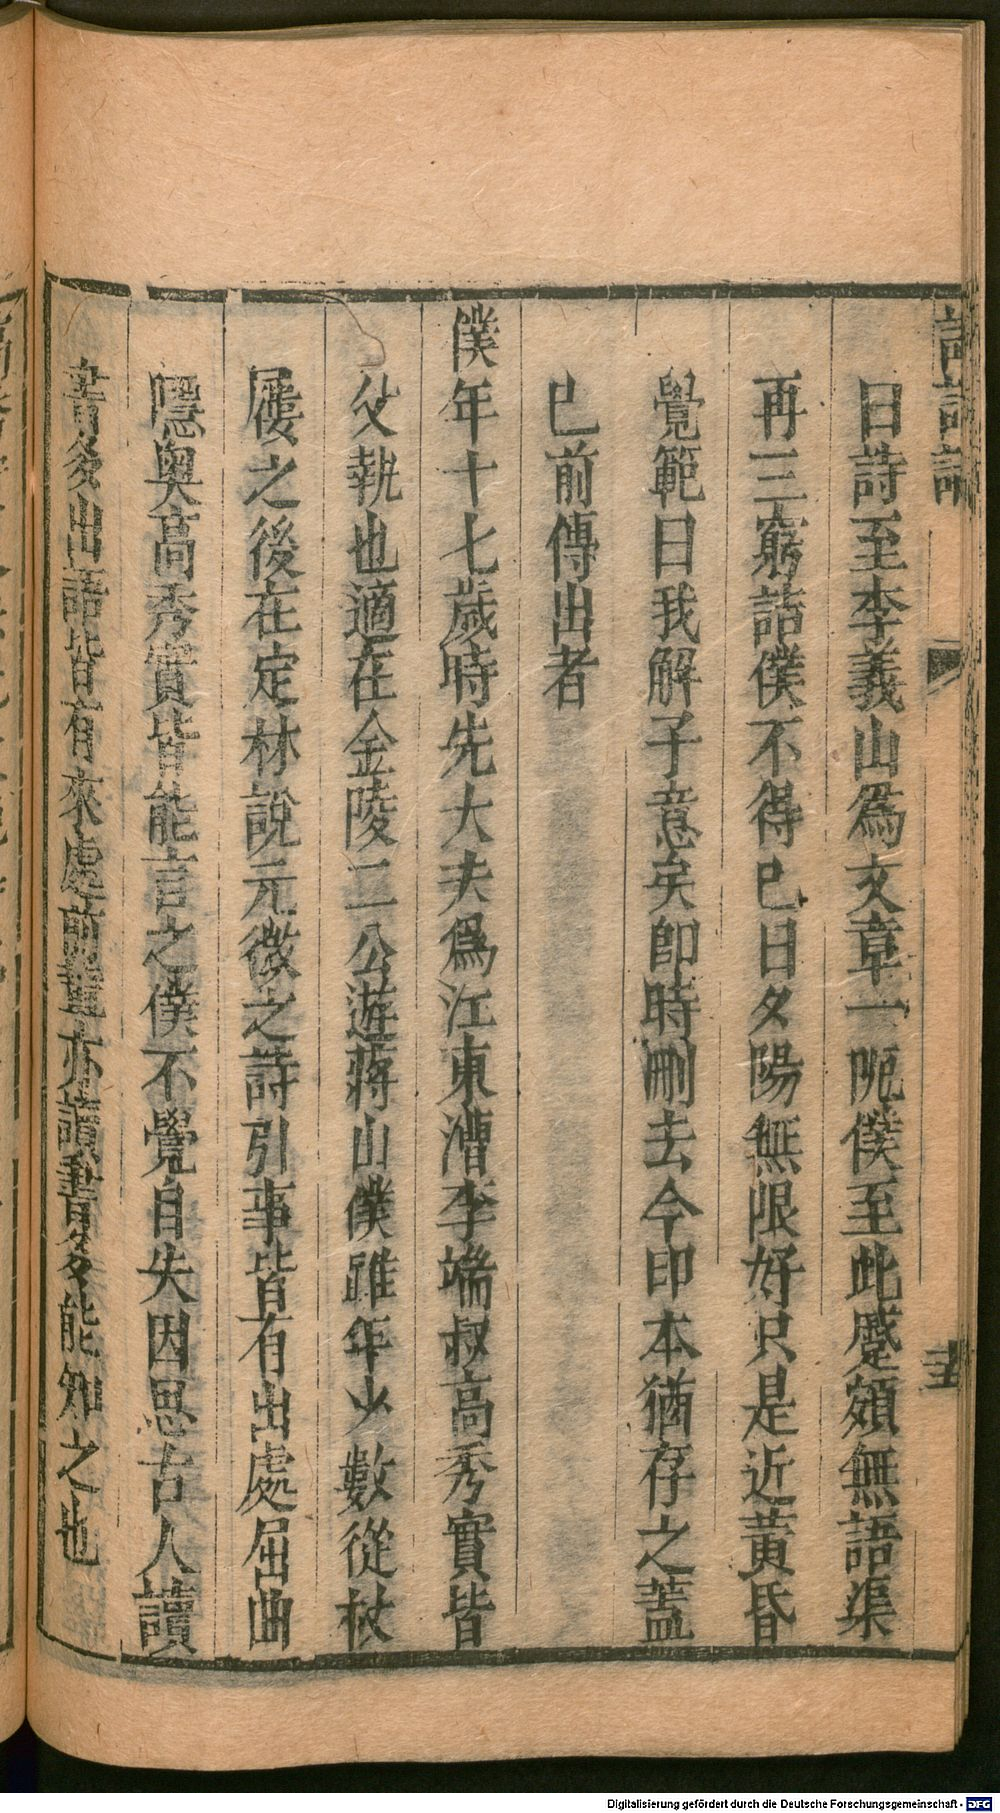 曰詩至李義山為文章一阨僕至此蹙頞無語渠
再三窮詰僕不得已曰夕陽無限好只是近黃昏
覺範曰我解子意矣即時刪去今印本猶存之蓋
已前傳出者
僕年十七歲時先大夫為江東漕李端叔高秀實皆
父執也適在金陵二公遊蔣山僕雖年少數從杖
屨之後在定林說元微之詩引事皆有出處屈曲
隱奧高秀實皆能言之僕不覺自失因思古人讀
書多出語皆有來處前輩亦讀書多能知之也
Digitalisierung gefördert durch die Deutsche Forschungsgemeinschaft - DFG